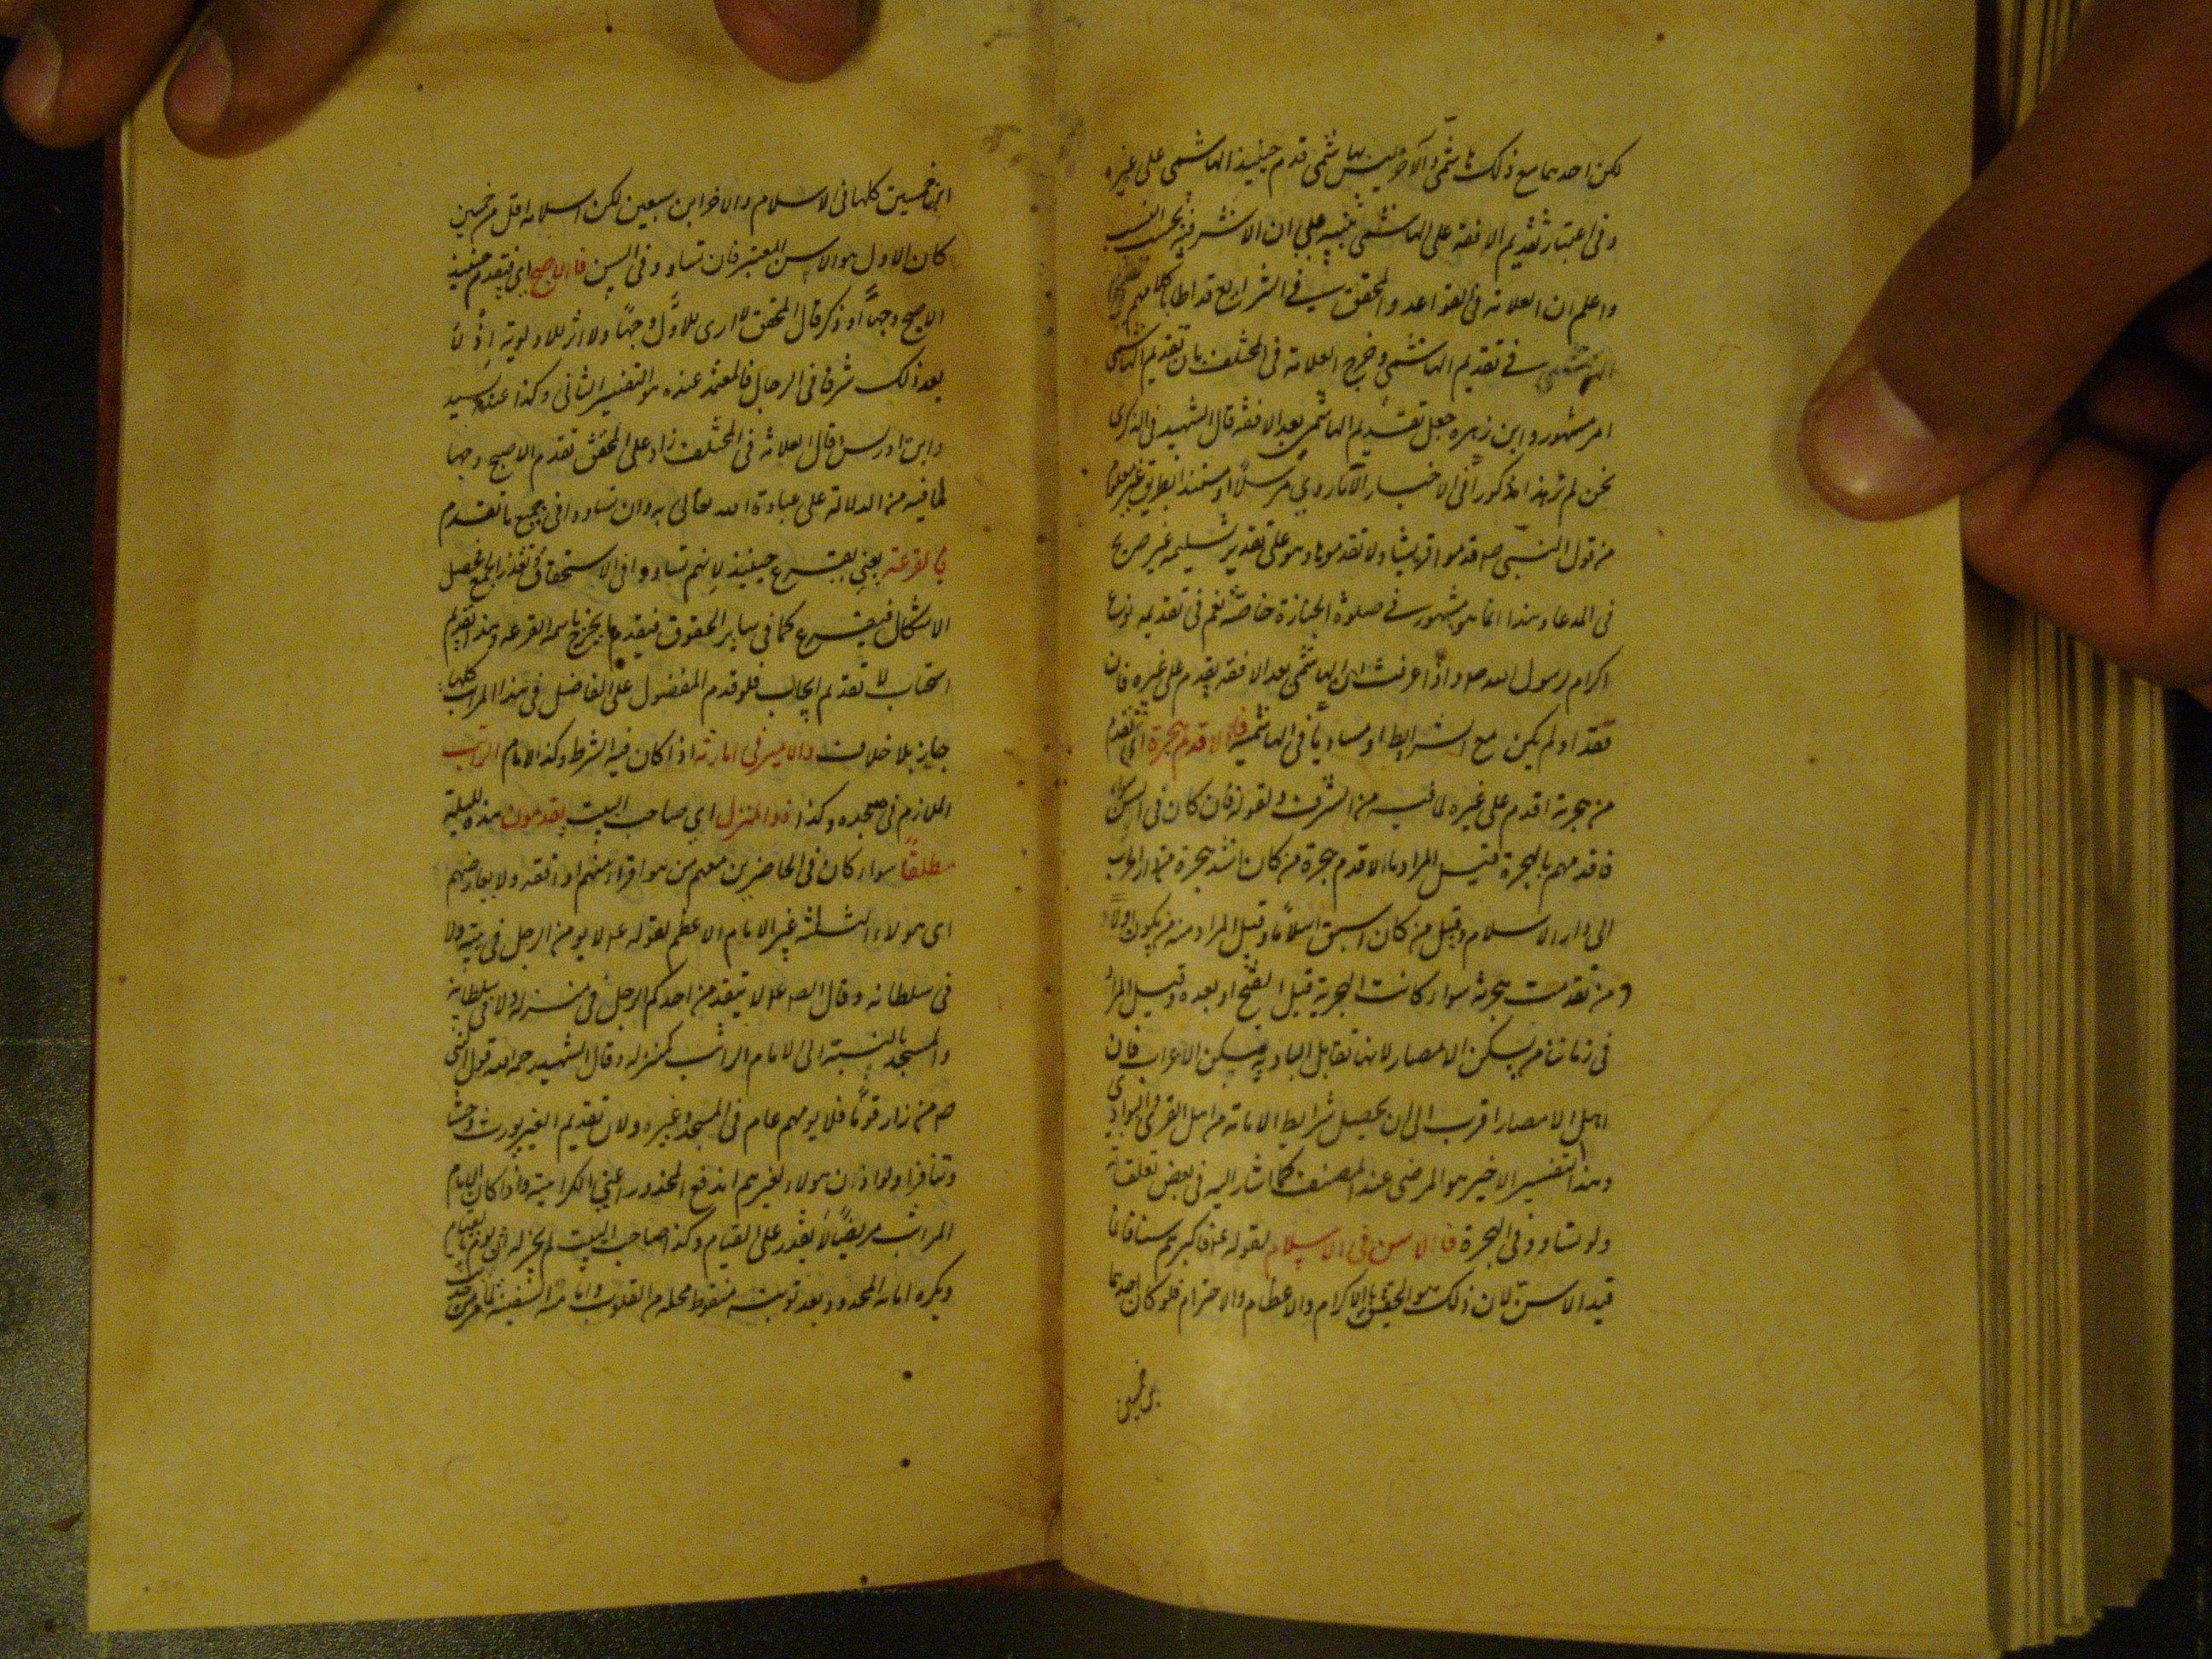 لكن احدهما مع ذلك هاشمى والآخر ليس بهاشمى قدم حينئذ الهاشمى على غيره
وفى اعتبار تقديم الافقه على الهاشمى تنبيه على ان الاشرفية بحسب النسب
واعلم ان العلامة فى القواعد والمحقق فى الشرايع قد اطلقا كلامهم
فى تقديم الهاشمى وخرج العلامة فى المختلف بان تقديم الهاشمى
امر مشهور وابن زهره جعل تقديم الهاشمى بعد الافقه قال الشهيد فى الذكرى
نحن لم نر هذا مذكورا فى الاخبار الا ما روى مرسلا او مسندا بطريق غير معلوم
من قول النبى ص قدموا قريشا ولا تقدموها وهو على تقدير تسليمه غير صريح
فى المدعا وهذا انما هو مشهور فى صلوة الجنازة خاصة نعم فى تقديمه نوع
اكرام لرسول الله ص واذا عرفت ان الهاشمى بعد الافقه يقدم على غيره فان
فقد او لم يكن مع الشرايط او مساويا فى الهاشمية فالاقدم هجرة اى تقدم
من هجرته اقدم على غيره لما فيه من الشرف ولقوله فان كان فى السن سواء
فاقدمهم بالهجرة قيل المراد بالاقدم هجرة من كان اشد هجرة من دار الحرب
الى دار الاسلام وقيل من كان اسبق اسلاما وقيل المراد منه من يكون اولاد
من تقدمت هجرته سواء كانت الهجرية قبل الفتح او بعده وقيل المراد
فى زماننا من يسكن الامصار لانها تقابل البادية مسكن الاعراب فان
اهل الامصار اقرب الى ان يحصل شرايط الامامة من اهل القرى والبوادى
وهذا التفسير الاخير هو المرضى عند المصنف كما اشار اليه فى بعض تعلقاته
ولو تساوو فى الهجرة فالاسن فى الاسلام لقوله ع فاكبرهم سنا فانما
قيد الاسن لان ذلك هو الحقيق بالاكرام والاعظام والاحترام فلو كان احدهما
ابن خمسين
ابن خمسين كلها فى الاسلام والاخر ابن سبعين لكن اسلامه اقل من خمسين
كان الاول هو الاسن المعتبر فان تساوو فى السن فالاصبح اى فيقدم حينئذ
الاصبح وجها وذكر قال المحقق لا ارى للاول وجها ولا اثر للاولوية اذ لا
بعد ذلك شرفا فى الرجال فالمعتمد عنده هو التفسير الثانى وكذا عند السيد
وابن ادريس قال العلامة فى المختلف زاد على المحقق تقدم الاصبح وجها
لما فيه من الدلالة على عبادة الله تعالى به وان تساووا فى جميع ما تقدم
فالقرعة يعنى يقرع حينئذ لانهم تساووا فى الاستحقاق وتعذر الجمع فحصل
الاشكال فيقرع كما فى ساير الحقوق فيقدم ما يخرج باسمه القرعه وهذا تقديم
استحباب لا تقديم ايجاب فلو قدم المفضول على الفاضل فى هذا المراتب كلها
جايز بلا خلاف والامير فى امارته اذا كان فيه الشرط وكذا الامام الراتب
الملازم فى مسجده وكذا ذو المنزل اى صاحب البيت يقدمون هذه الثلثة
مطلقا سواء كان فى الحاضرين معهم من هو اقراء منهم او افقه ولا يعارضهم
اى هولاء الثلثة غير الامام الاعظم لقوله ع لا يومن الرجل فى بيته ولا
فى سلطانه وقال الص ع لا يتقدمن احدكم الرجل فى منزله ولا فى سلطانه
والمسجد بالنسبة الى الامام الراتب كمنزله وقال الشهيد رحمه الله قول النبى
ص من زار قوما فلا يومهم عام فى المسجد وغيره ولان تقديم الغير يورث وحشا
وتنافرا ولو اذن هولاء لغيرهم اندفع المحذور اعنى الكراهية واذا كان الامام
الراتب مريضا لا يقدر على القيام وكذا صاحب البيت لم يجز له ان يوم بالقيام
ويكره امامة المحدود بعد توبته لسقوط محله من القلوب وامامة السفينة